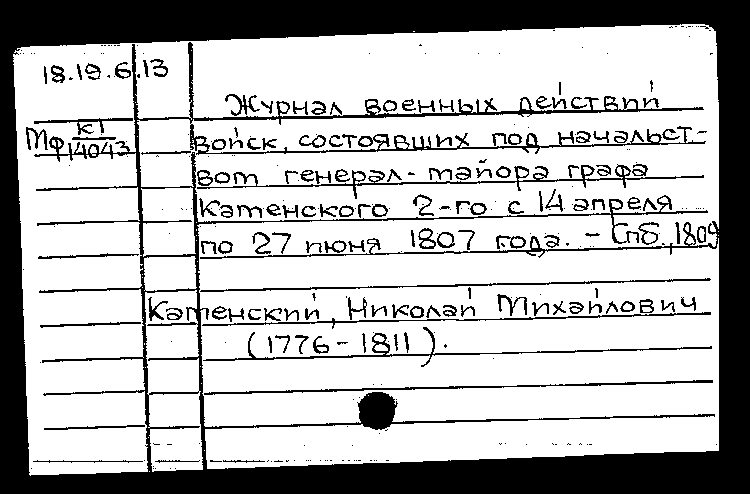 18.19.6.13
Журнал военных действий
Мф К1/14043
войск, состоявших под начальст-
вом генерал-майора графа
Каменского 2-го с 14 апреля
по 27 июня 1807 года. - Спб., 1809
Каменский, Николай Михайлович
(1776-1811).